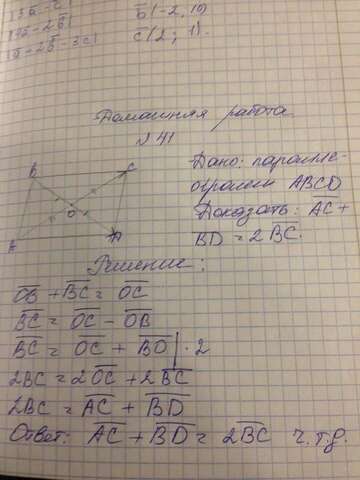 |3a̅ - c̅|
b̅(-2; 1)
|3a̅ - 2b̅|
c̅(2; 1).
|a̅ - 2b̅ - 3c̅|
Домашняя работа
N 41
Дано: паралле-
ограмм ABCD
Доказать: AC +
BD = 2BC̅.
B
C
O
A
D
Решение:
O̅B̅ + B̅C̅ = O̅C̅
B̅C̅ = O̅C̅ - O̅B̅
B̅C̅ = O̅C̅ + B̅O̅ | · 2
2BC = 2O̅C̅ + 2B̅C̅
2BC = A̅C̅ + B̅D̅
Ответ: A̅C̅ + B̅D̅ = 2B̅C̅ ч.т.д.